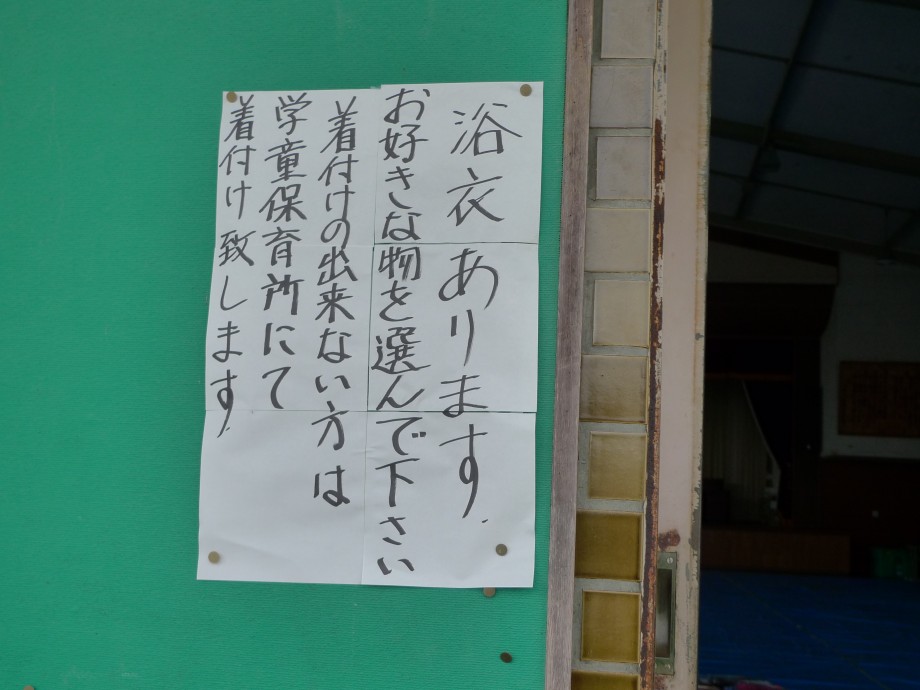 浴衣あります.
お好きな物を選んで下さい
着付けの出来ない方は
学童保育所にて
着付け致します.